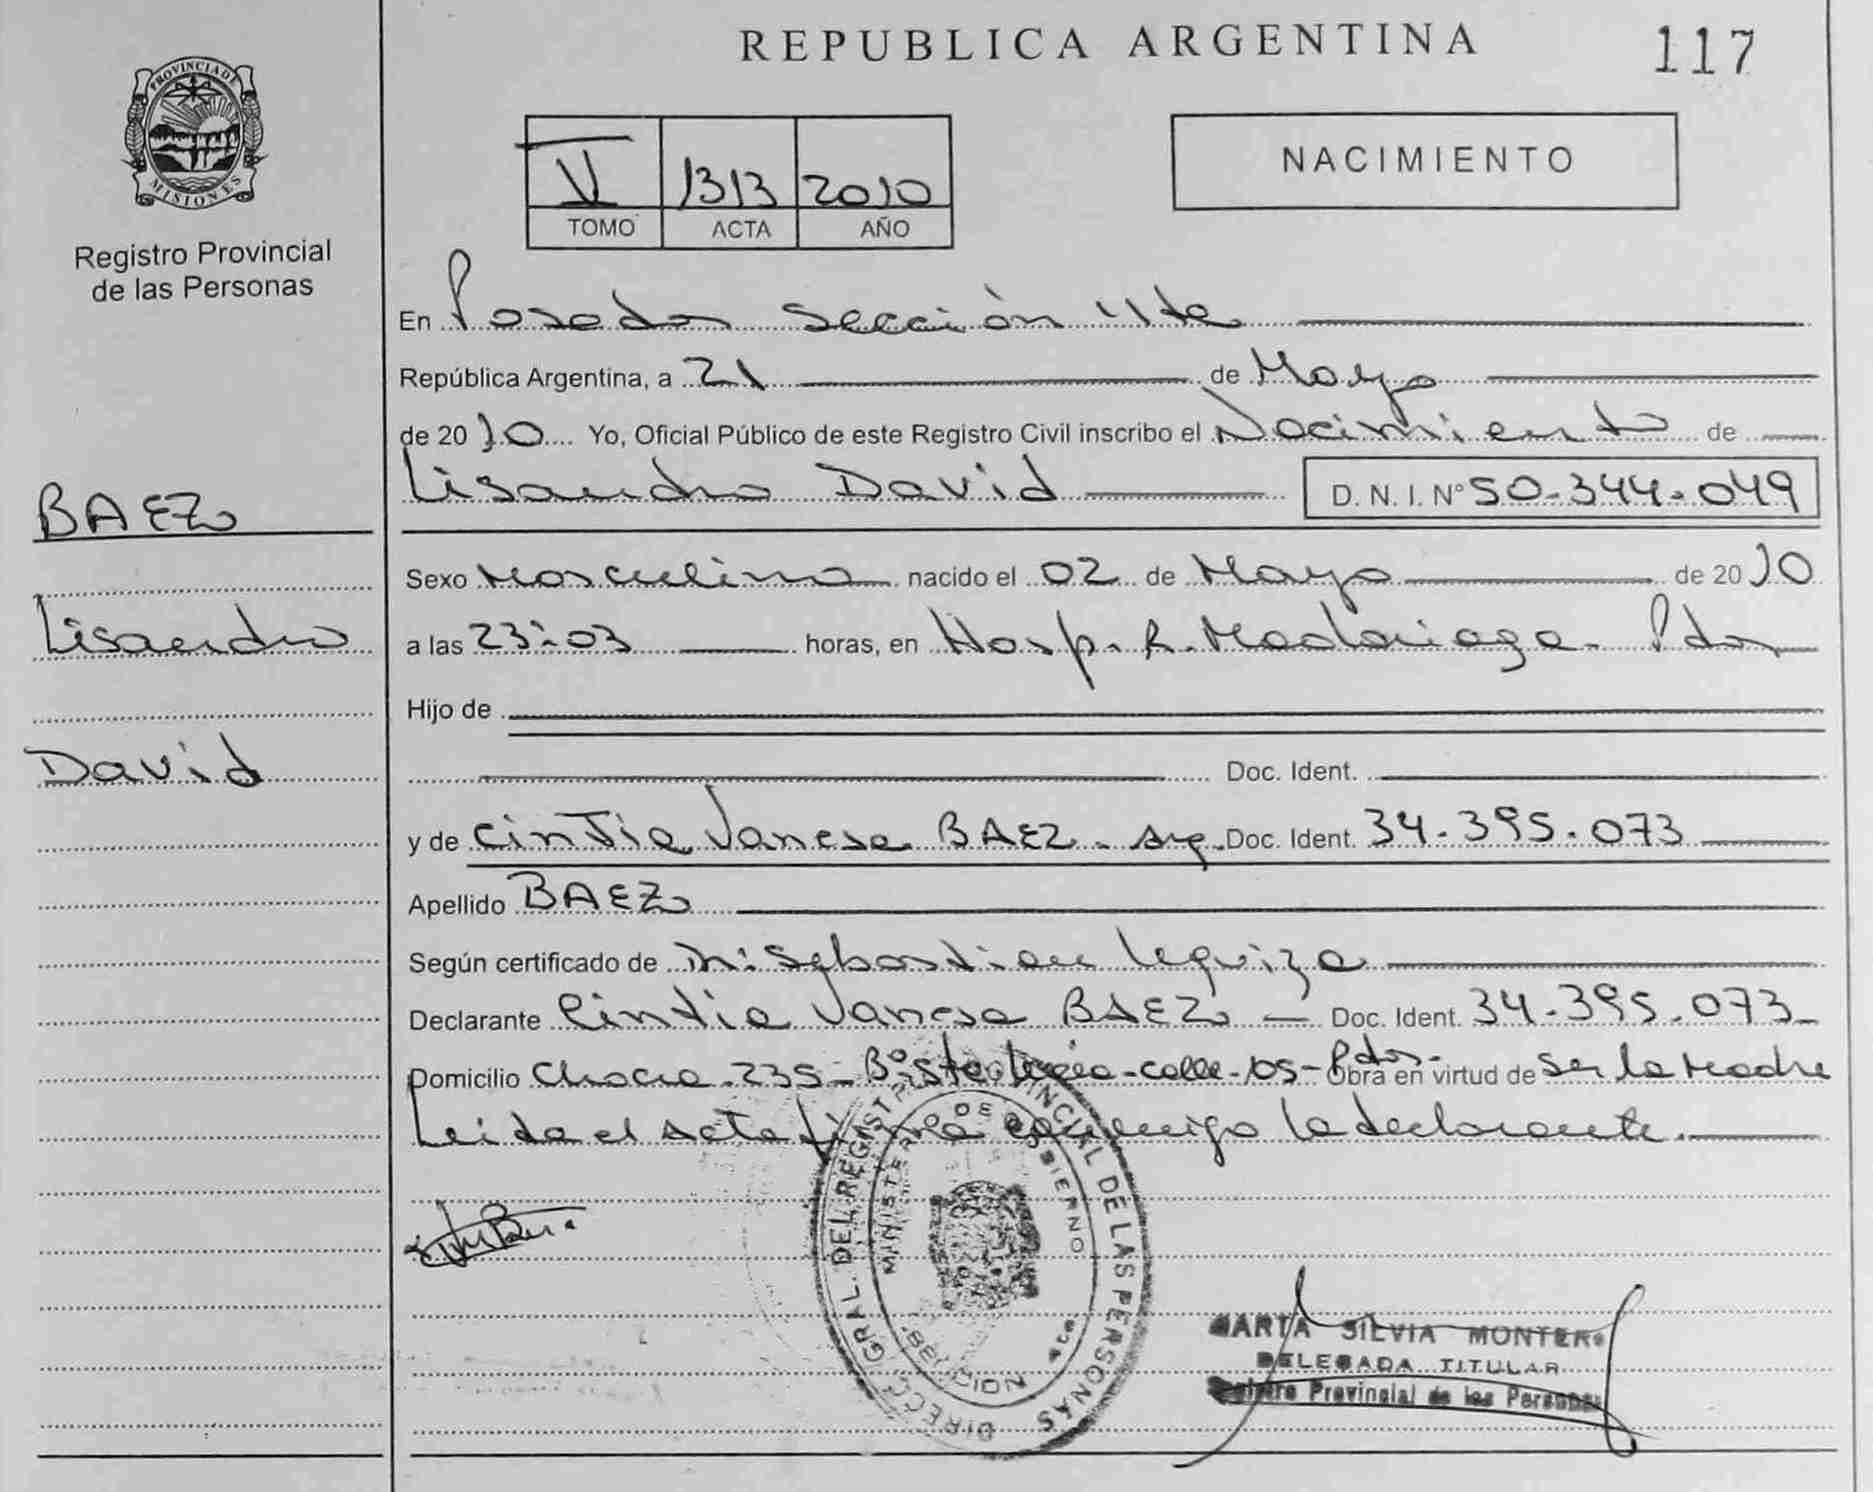 REPUBLICA ARGENTINA
117
PROVINCIA DE MISIONES
Registro Provincial
de las Personas
V 1313 2010
TOMO ACTA AÑO
NACIMIENTO
En Posadas Sección 4ta
República Argentina, a 21 de Mayo
de 2010 Yo, Oficial Público de este Registro Civil inscribo el Nacimiento de
Lisandro David D. N. I. Nº 50-344-049
BAEZ
Lisandro
David
Sexo Masculino nacido el 02 de Mayo de 2010
a las 23:03 horas, en Hosp. R. Madariaga - Pdas
Hijo de
Doc. Ident.
y de Cintia Vanesa BAEZ - Arg. Doc. Ident. 34.395.073
Apellido BAEZ
Según certificado de Leguiza
Declarante Cintia Vanesa BAEZ - Doc. Ident. 34.395.073
Domicilio Chacra 235 - Bº Sta. - calle 105 - Pdas. Obra en virtud de Ser la Madre
Leida el Acta firma conmigo la declarante.
DIRECC. GRAL. DEL REGISTRO PROVINCIAL DE LAS PERSONAS
MINISTERIO DE GOBIERNO
MARTA SILVIA MONTERO
DELEGADA TITULAR
Registro Provincial de las Personas